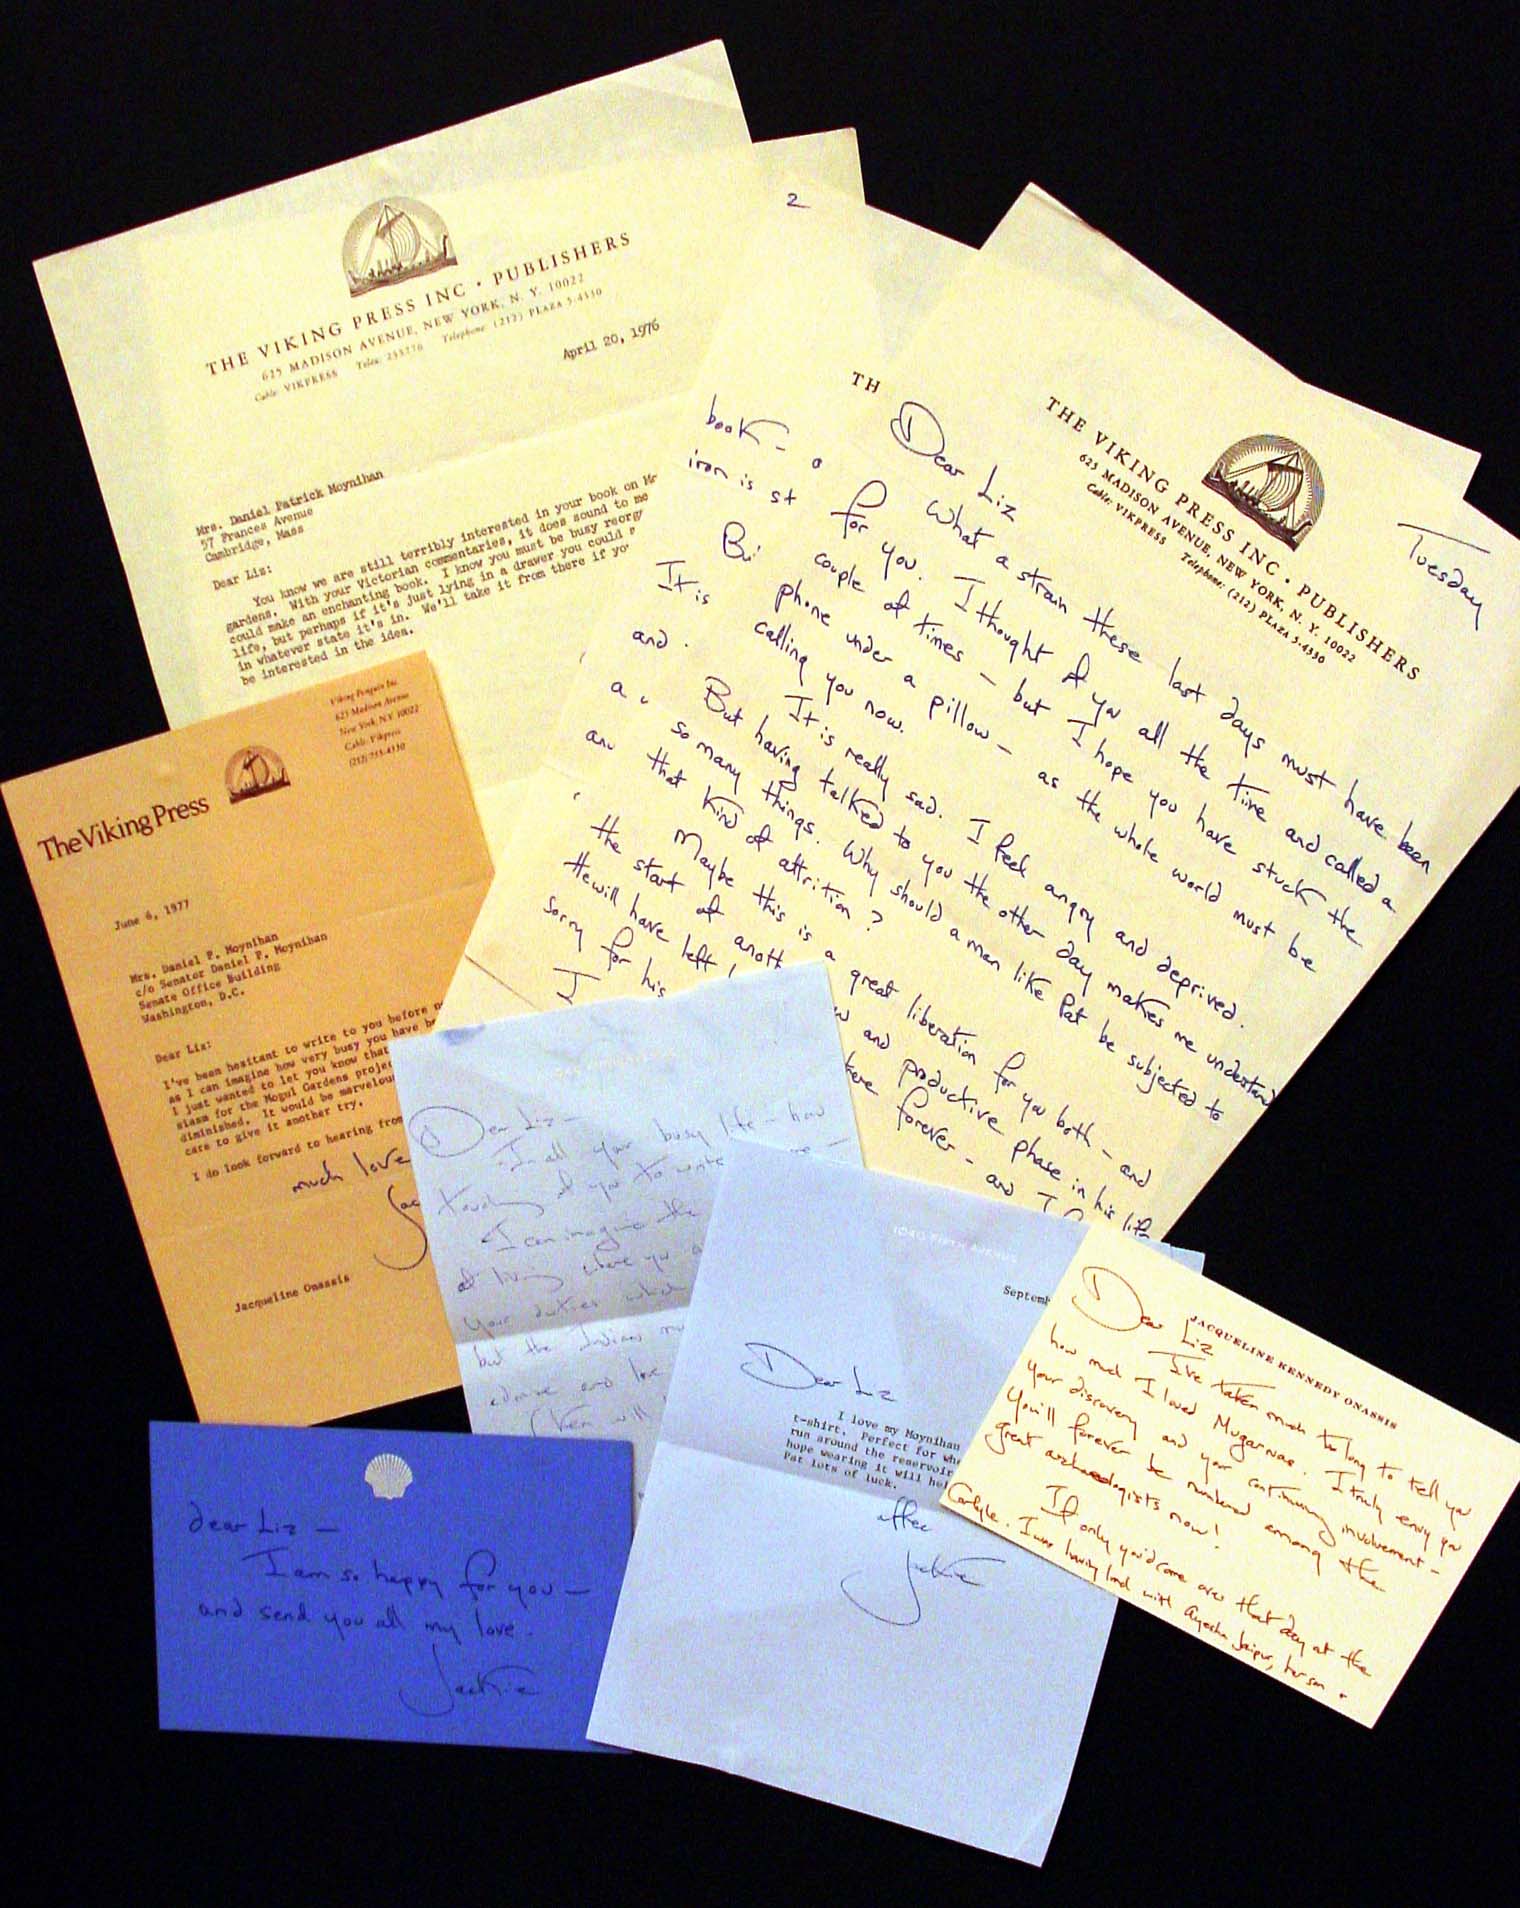 THE VIKING PRESS INC · PUBLISHERS
625 MADISON AVENUE, NEW YORK, N. Y. 10022
Cable: VIKPRESS Telex: 235770 Telephone: (212) PLAZA 5-4330
April 20, 1976
Mrs. Daniel Patrick Moynihan
57 Frances Avenue
Cambridge, Mass
Dear Liz:
You know we are still terribly interested in your book on
gardens. With your Victorian commentaries, it does sound to me
could make an enchanting book. I know you must be busy
life, but perhaps if it's just lying in a drawer you could
in whatever state it's in. We'll take it from there if
be interested in the idea.
2
TH
book –
iron is
It is
and
THE VIKING PRESS INC · PUBLISHERS
625 MADISON AVENUE, NEW YORK, N. Y. 10022
Cable: VIKPRESS Telephone: (212) PLAZA 5-4330
Tuesday
Dear Liz
What a strain these last days must have been
for you. I thought of you all the time and called a
couple of times – but I hope you have stuck the
phone under a pillow – as the whole world must be
calling you now.
It is really sad. I feel angry and deprived.
But having talked to you the other day makes me understand
so many things. Why should a man like Pat be subjected to
that kind of attrition?
Maybe this is a great liberation for you both – and
the start of and productive phase in his life
He will have left forever – and I
sorry for his
I
The Viking Press
Viking Penguin Inc.
625 Madison Avenue
New York, NY 10022
Cable: Vikpress
(212) 755-4330
June 6, 1977
Mrs. Daniel P. Moynihan
c/o Senator Daniel P. Moynihan
Senate Office Building
Washington, D.C.
Dear Liz:
I've been hesitant to write to you before
as I can imagine how very busy you have
I just wanted to let you know that
siasm for the Mogul Gardens
diminished. It would be
care to give it another try.
I do look forward to hearing from
much love
Jac
Jacqueline Onassis
Dear Liz –
In all your busy life – how
touching of you to write me –
I can imagine the
of living where you
your duties which
but the Indian
admire and love
1040 FIFTH AVENUE
Septemb
Dear Liz
I love my Moynihan
t-shirt. Perfect for
run around the reservoir
hope wearing it will
Pat lots of luck.
affec
Jackie
JACQUELINE KENNEDY ONASSIS
Dear Liz
I've taken much too long to tell you
how much I loved I truly envy you
your discovery and your continuing involvement –
You'll forever be numbered among the
great archaeologists now!
If only you'd come over that day at the
Carlyle. I was having lunch with Ayesha Jaipur, her son
dear Liz –
I am so happy for you –
and send you all my love.
Jackie